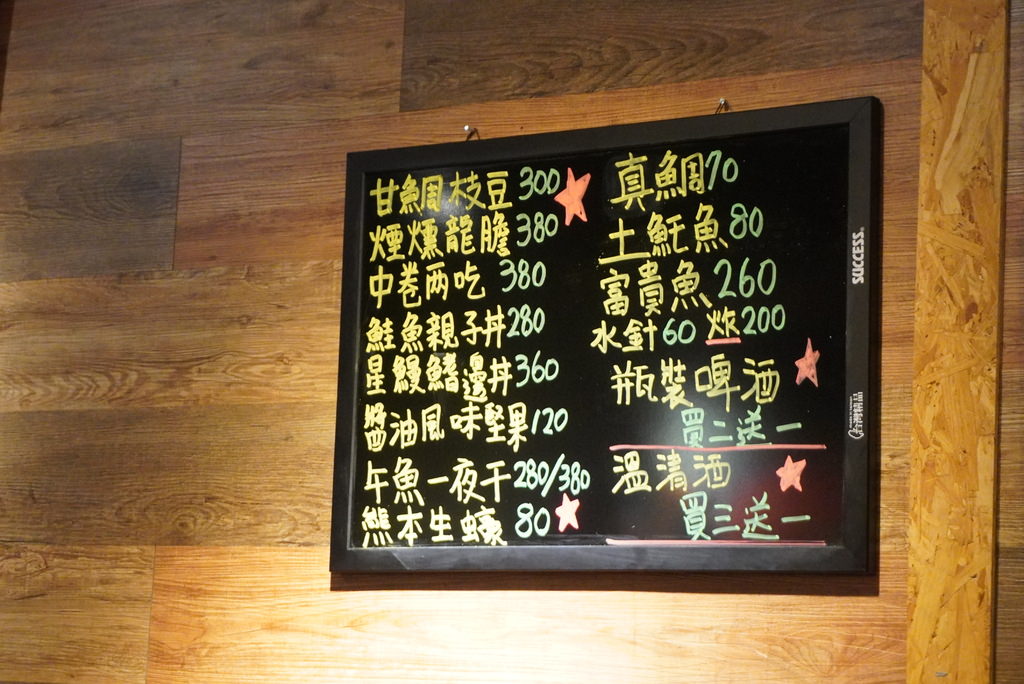 甘鯛枝豆300
煙燻龍膽380
中卷两吃 380
鮭魚親子丼280
星鰻鰭邊丼360
醬油風味堅果120
午魚一夜干280/380
熊本生蠔 80
真鯛70
土魠魚80
富貴魚260
水針60 炸200
瓶裝啤酒
買二送一
溫清酒
買三送一
SUCCESS®
台灣精品